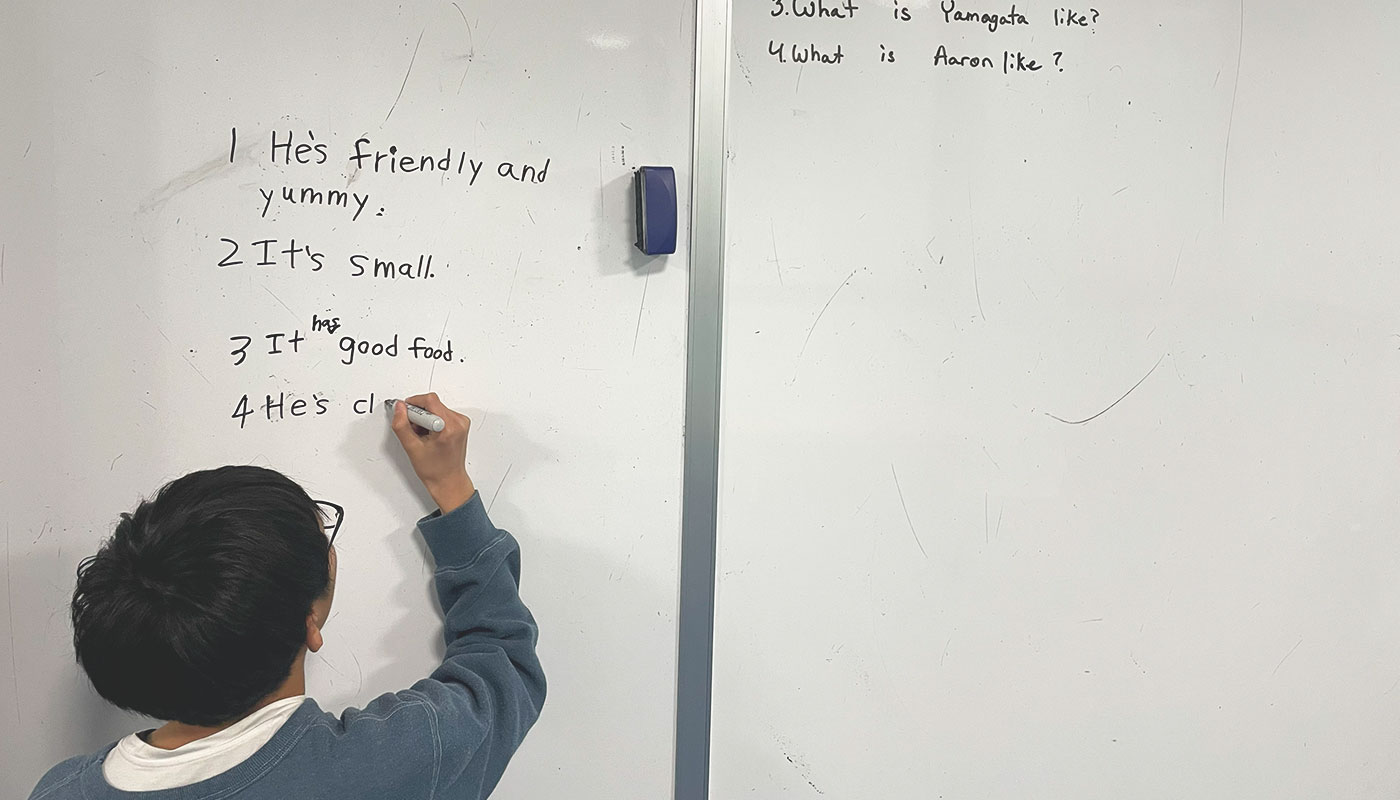 1 He's friendly and
yummy.
2 It's small.
3 It has good food.
4 He's cl
3. What is Yamagata like?
4. What is Aaron like?